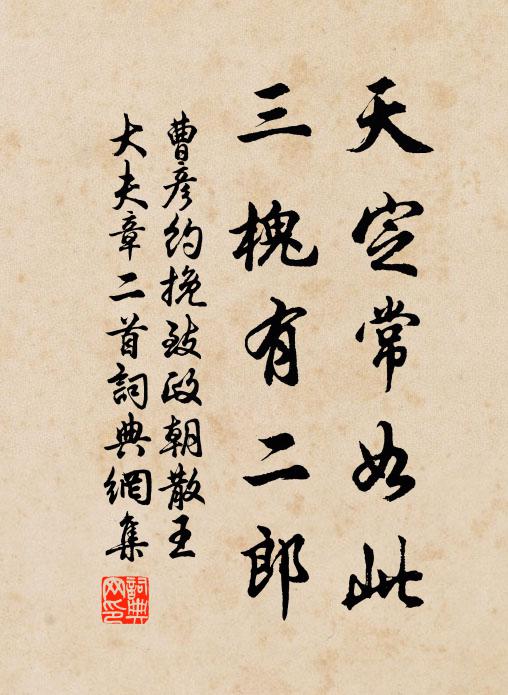 天定常如此
三槐有二郎
曹彦約挽致政朝散王
大夫章二首詞典網集
詞典網印